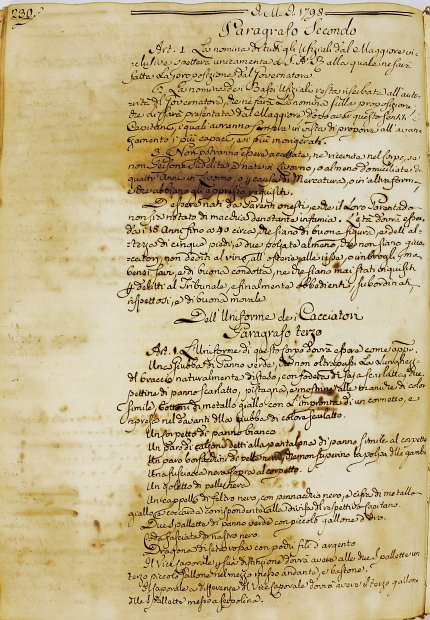 230.
I. M. I. 1798
Paragrafo Secondo
Art. 1. La nomina di tutti gli Ufiziali dal Maggiore in-
clusive spetterà unicamente a S. A. R. alla quale ne sarà
fatta la proposizione dal Governatore.
2. La nomina dei Bassi Ufiziali resta riserbata all'auto-
rità di Governatore, che ne farà la nomina sulla proposizione
che gli sarà presentata dal Maggiore dopo aver questo sentiti i
Capitani, i quali avranno sempre in vista di proporre all'avan-
zamento i più capaci, e i più
3. Non potranno essere accettate, ne ricevute nel Corpo, se
non Persone Suddite o Nature in Livorno, o almeno domiciliate da
quattr'Anni in Livorno, o per causa di Mercatura, o in altra forma
e che abbiano gli appresso requisiti.
D'esser nati da Parenti onesti, e che il loro Parentado
non sia notato di macchia denotante infamia. L'età dovrà esse-
re da i 18 Anni fino a 40 circa, che siano di buona figura, e dell'al-
tezza di cinque piedi, e due pollate almeno, che non siano gioca-
tori, non dediti al vino, all'osterie, alle risse, o imbrogli, ma
bensì savi, e di buona condotta, ne che siano mai stati inquisiti
per delitti al Tribunale, e finalmente obbedienti, subordinati,
rispettosi, e di buona morale.
Dell'Uniforme dei Cacciatori
Paragrafo terzo
Art. 1. L'Uniforme di questo corpo dovrà essere come appr.
Una giubba di Panno verde, che non oltrepassi la lunghezza
del braccio naturalmente disteso, con fodera di saja scarlatta, e due
pettine di panno scarlatto, pistagna, e mostre alle maniche di color
simile, bottoni di metallo giallo con l'impronta di un cornetto, e
impresso nel davanti della giubba di colore scarlatto.
Un corpetto di panno bianco
Un paro di calzoni detti alla pantalona di panno simile al corpetto
Un paro borsacchini di pelle nera, che non superino la polpa delle gambe
Una fusciacca nera sopra al corpetto.
Un goletto di pelle nera
Un cappello di feltro nero, con pennacchio nero, e cifra di metallo
giallo, e coccarda corrispondente alla divisa del rispettivo fucitano.
Due spallette di panno verde con piccolo gallone d'Oro.
Coda fasciata di nastro nero.
Dragona di seta rossa con pochi fili d'argento
Il Vice Caporale per sua distinzione dovrà avere alle due spallette un
terzo piccolo gallone nel mezzo messo andante, e bastone,
Il Caporale a differenza del Vice Caporale dovrà avere il terzo gallone
delle spallette messo a serpolina.